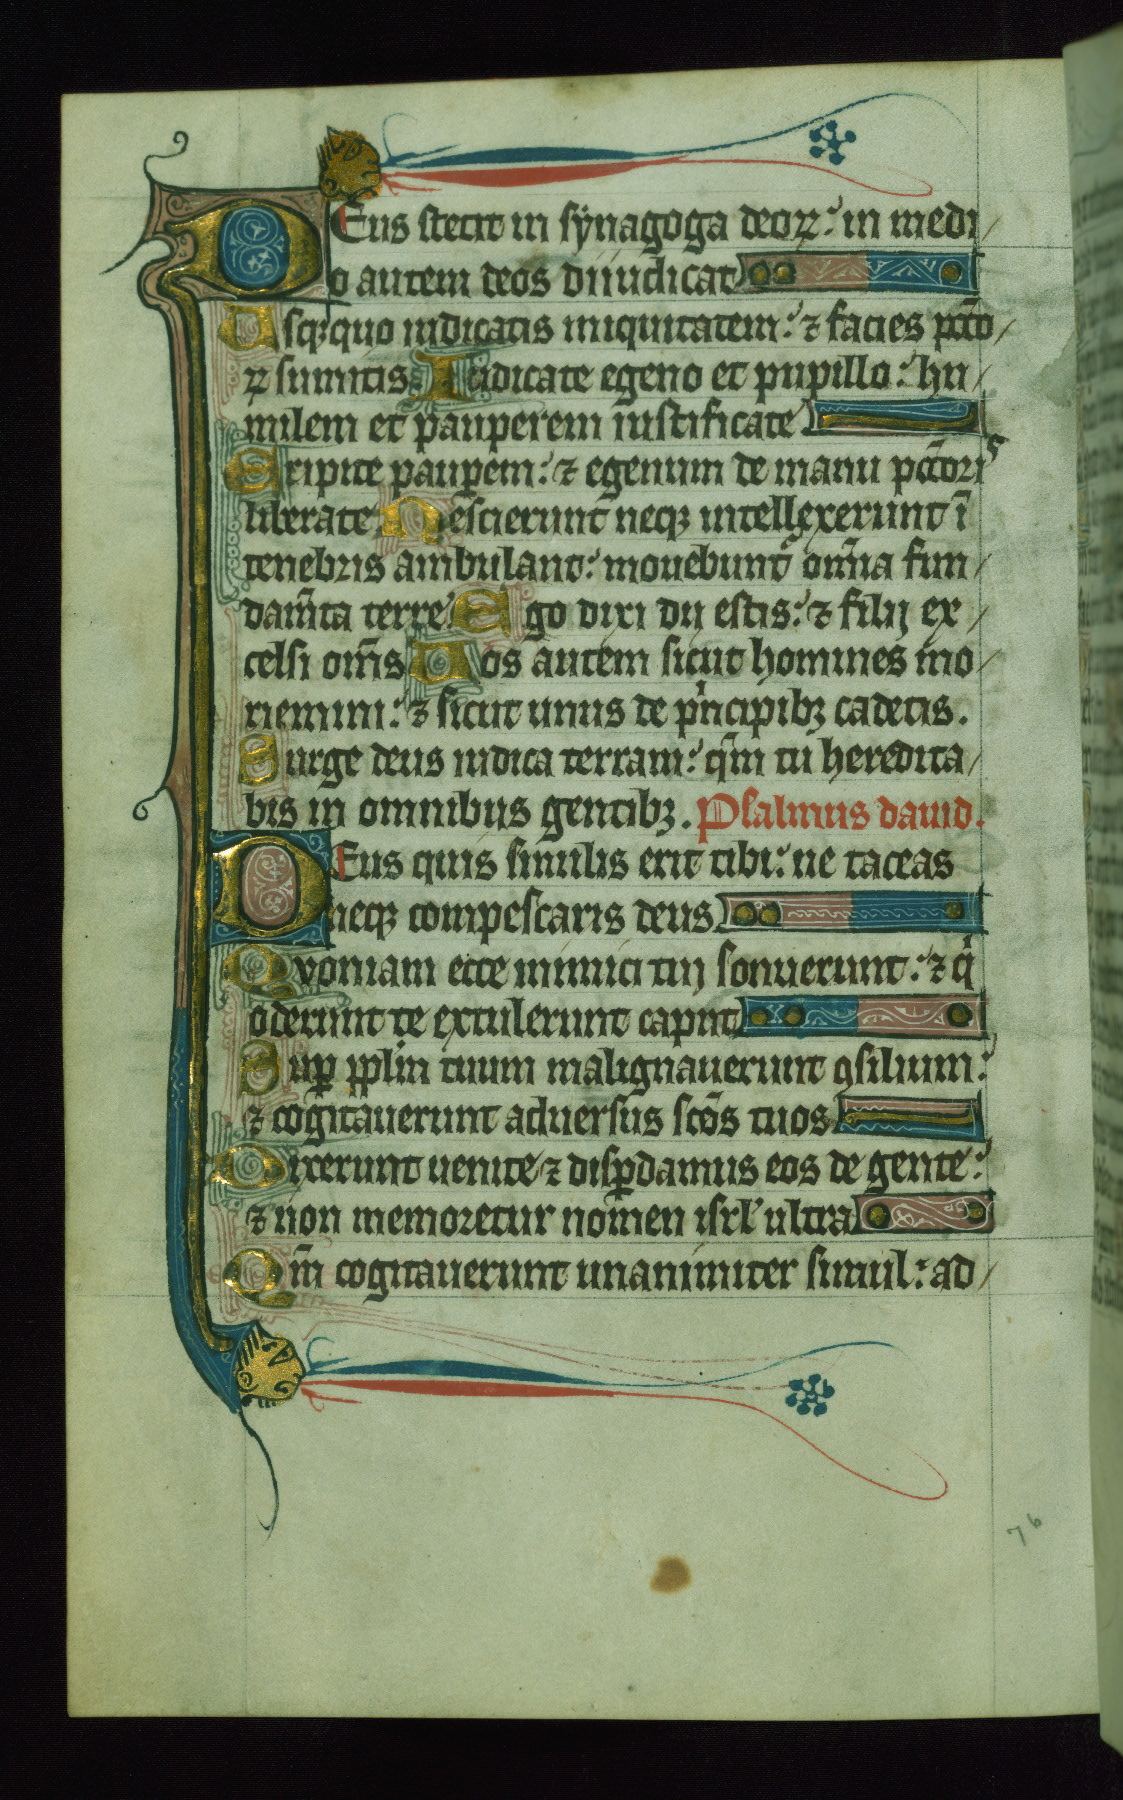 DEus stetit in synagoga deoꝝ: in medi
o autem deos diiudicat
Usqꝫquo iudicatis iniquitatem: ⁊ facies pctō
ꝝ sumitis Iudicate egeno et pupillo: hu
milem et pauperem iustificate
Eripite pauꝑem: ⁊ egenum de manu pctōris
liberate Nescierunt neqꝫ intellexerunt ī
tenebris ambulant: mouebunt᷑ om̄ia fun
dam̄ta terre Ego dixi dij estis: ⁊ filij ex
celsi om̄s Uos autem sicut homines mo
riemini: ⁊ sicut unus de pͥncipibꝫ cadetis.
Surge deus iudica terram: qm̄ tu heredita
bis in omnibus gentibꝫ. Psalmus dauid.
DEus quis similis erit tibi: ne taceas
neqꝫ compescaris deus
Quoniam ecce inimici tuj sonuerunt: ⁊ qͥ
oderunt te extulerunt caput
Suꝑ pplm̄ tuum malignauerunt ꝯsilium:
⁊ cogitauerunt aduersus sc̄os tuos
Dixerunt uenite ⁊ disꝑdamus eos de gente:
⁊ non memoretur nomen isrl' ultra
Qm̄ cogitauerunt unanimiter simul: ad
76